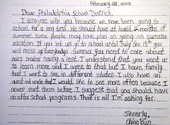 February 28, 2002
Dear Philadelphia School District,
I disagree with you because we have been going to
school for a long time. We should have at least 2 months of
summer. Some people may have plans on going on summer
vacation. If you let us go to school until July the 15th you
will mess up everybody. Summer you need to come
out having a rest. I understand that you want us
to learn more and I agree to that but I have family
that I want to see in different states. I also have an
aunt and uncle that I would like to see more often because I
never met them before. I suggest that you should have
an after school programs. That is all I'm asking for.
Sincerely,